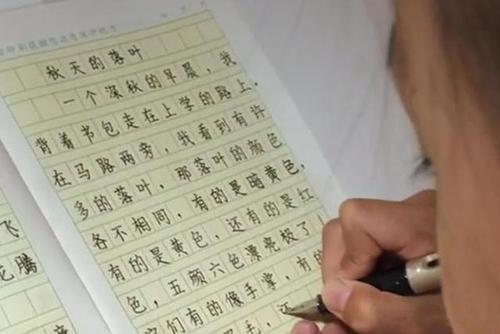 秋天的落叶
一个深秋的早晨，我
背着书包走在上学的路上，
在马路两旁，我看到有许
多的落叶，那落叶的颜色
各不相同，有的是暗黄色，
有的是黄色，还有的是红
色，五颜六色漂亮极了！
它们有的像手掌，有的
飞
腾